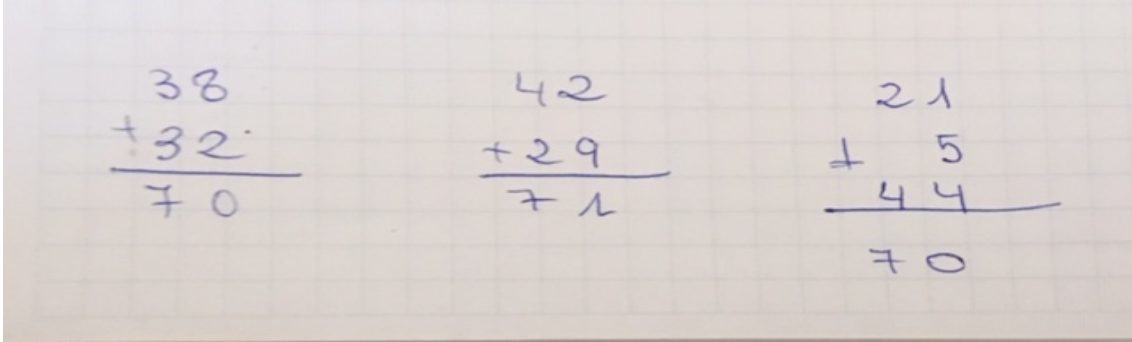 38
+32
70
42
+29
71
21
+ 5
44
70